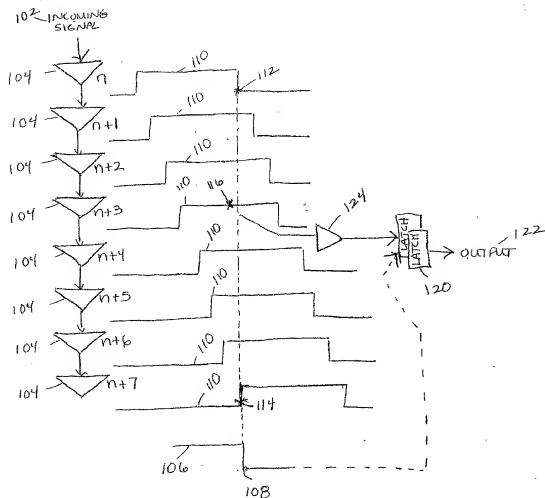 102 INCOMING
SIGNAL
104
n
110
112
104
n+1
110
104
n+2
110
104
n+3
110
116
124
LATCH
LATCH
OUTPUT
122
120
104
n+4
110
104
n+5
110
104
n+6
110
104
n+7
110
114
106
108